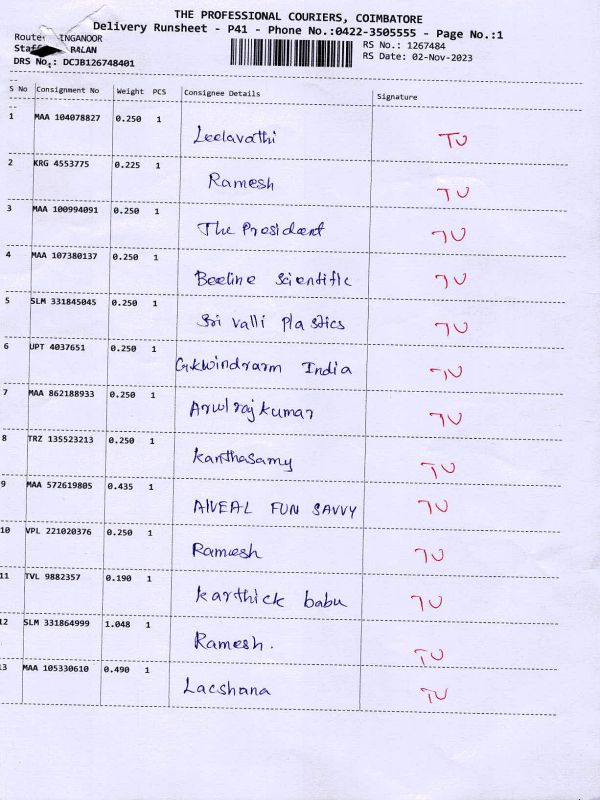 THE PROFESSIONAL COURIERS, COIMBATORE
Delivery Runsheet - P41 - Phone No.:0422-3505555 - Page No.:1
Route: INGANOOR
RS No.: 1267484
Staff BALAN
RS Date: 02-Nov-2023
DRS No.: DCJB126748401
S No Consignment No Weight PCS Consignee Details Signature
1 MAA 104078827 0.250 1
Leelavathi TU
2 KRG 4553775 0.225 1
Ramesh TU
3 MAA 100994091 0.250 1
The President TU
4 MAA 107380137 0.250 1
Beeline Scientific TU
5 SLM 331845045 0.250 1
Sri valli plastics TU
6 UPT 4037651 0.250 1
India TU
7 MAA 862188933 0.250 1
Arulrajkumar TU
8 TRZ 135523213 0.250 1
Kanthasamy TU
9 MAA 572619805 0.435 1
FUN SAVVY TU
10 VPL 221020376 0.250 1
Ramesh TU
11 TVL 9882357 0.190 1
Karthick babu TU
12 SLM 331864999 1.048 1
Ramesh. TU
13 MAA 105330610 0.490 1
Lacshana TU